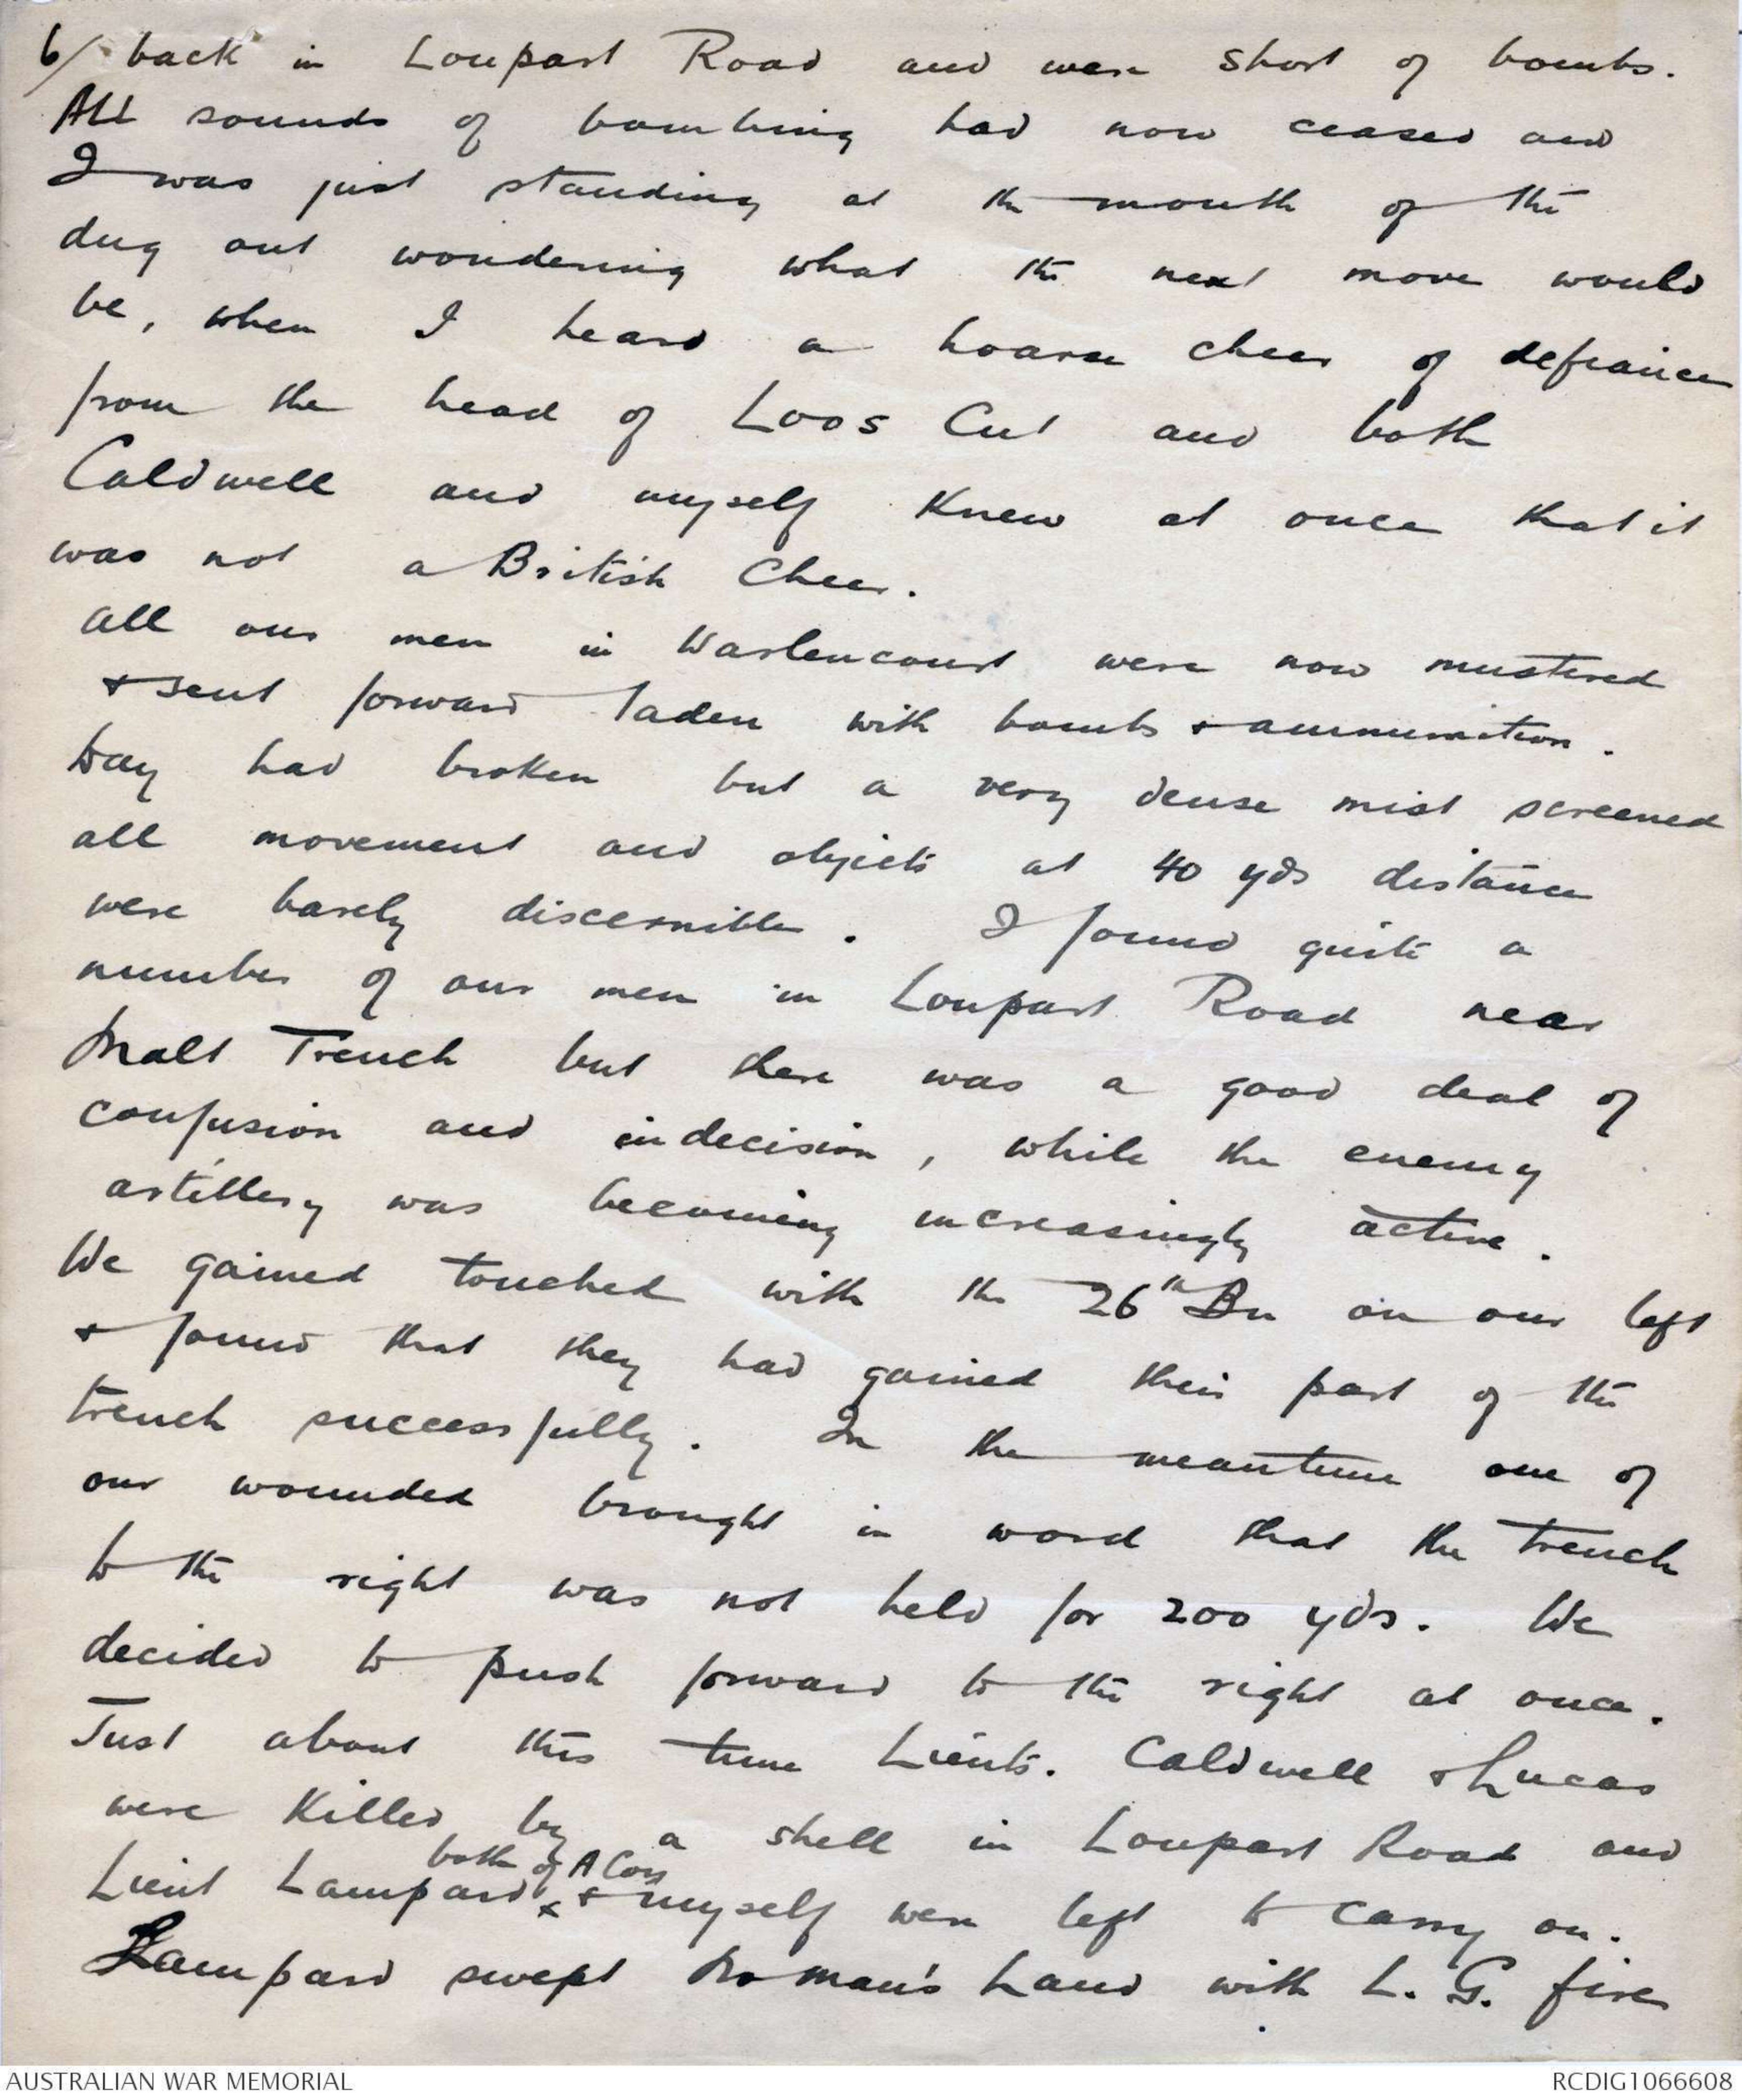 6/ back in Loupart Road and were short of bombs.
All sounds of bombing had now ceased and
I was just standing at the mouth of the
dug out wondering what the next move would
be, when I heard a hoarse cheer of defiance
from the head of Loos Cut and both
Caldwell and myself knew at once that it
was not a British Cheer.
All our men in Warlencourt were now mustered
& sent forward laden with bombs & ammunition.
Day had broken but a very dense mist screened
all movement and objects at 40 yds distance
were barely discernible. I found quite a
number of our men in Loupart Road near
Malt Trench but there was a good deal of
confusion and indecision, while the enemy
artillery was becoming increasingly active.
We gained touched with the 26th Bn on our left
& found that they had gained their part of the
trench successfully. In the meantime one of
our wounded brought in word that the trench
to the right was not held for 200 yds. We
decided to push forward to the right at once.
Just about this time Lieuts. Caldwell & Lucas
were killed by a shell in Loupart Road and
both of A Coy
Lieut Lampard x & myself were left to carry on.
Lampard swept No man's Land with L. G. fire
AUSTRALIAN WAR MEMORIAL RCDIG1066608